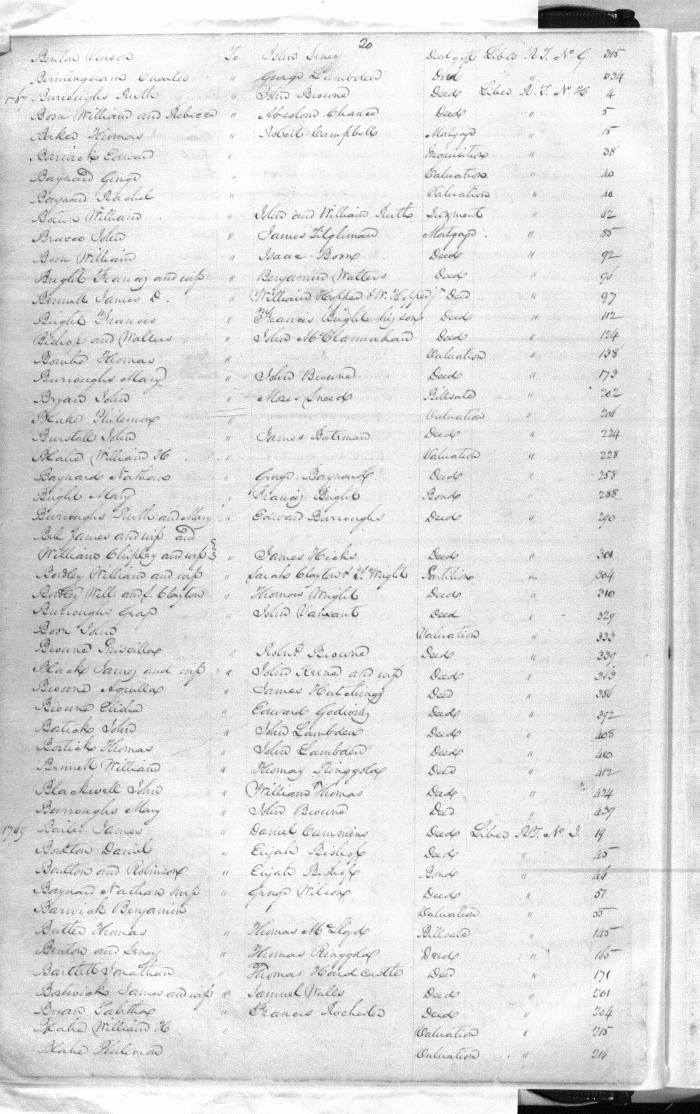 20
Benton Vinson To John Seney Deed of gift Liber R.T. No G 315
Birmingham Charles " George Lambden Deed " 334
1767 Burroughs Ruth " John Browne Deed Liber R.T. No H 4
Boon William and Rebecca " Absolom Chance Deed " 5
Baker Thomas " Robert Campbell Mortgage " 15
Barrick Edward " Inquisition " 38
Baynard George " Valuation " 40
Baynard Rachel " Valuation " 40
William " John and William Ruth Judgment " 62
Bracco John " James Tilghman Mortgage " 85
Boon William " Isaac Boon Deed " 92
Bright Francis and wife " Benjamin Walters Deed " 96
Bennett James D. " William Hopper & W. Hopper Deed " 97
Bright Francis " Francis Bright his son Deed " 112
Bishop and Walters " John McClannahan Deed " 124
Thomas " Valuation " 138
Burroughs Mary " John Browne Deed " 173
Bryan John " Moses Sneed Billsale " 202
Blake Philemon " Valuation " 206
Burstall John " James Bateman Deed " 224
Blake William H. " Valuation " 228
Baynard Nathan " George Baynard Deed " 258
Bright Mary " Francis Bright Bond " 288
Burroughs Ruth and Mary " Edward Burroughs Deed " 290
Bell James and wife and
William Chipley and wife " James Hicks Deed " 301
Bordley William and wife " Sarah Clayton & T. Wright Partition " 304
Bordley Will and J. Clayton " Thomas Wright Deed " 310
Burroughs Grace " John Vansant Deed " 329
Boon John " Valuation " 333
Browne Priscilla " Robert Browne Deed " 339
Black James and wife " John Keene and wife Deed " 363
Browne Aquilla " James Hutchings Deed " 386
Browne Elisha " Edward Godwin Deed " 392
Bostick John " John Lambden Deed " 408
Bostick Thomas " John Lambden Deed " 410
Bennett William " Thomas Ringgold Deed " 412
Blackwell John " William Thomas Deed " 424
Burroughs Mary " John Browne Deed " 439
1769 Bailey James " Daniel Cummins Deed Liber R.T. No I. 19
Boulton Daniel " Elijah Bishop Deed " 45
Boulton and Robinson " Elijah Bishop Bond " 46
Baynard Nathan wife " George Wilson Deed " 51
Barwick Benjamin " Valuation " 55
Butler Thomas " Thomas McLloyd Billsale " 145
Benton and Seney " Thomas Ringgold Deed " 165
Bartlett Jonathan " Thomas Hardcastle Deed " 171
Bostwick James and wife " Samuel Walls Deed " 201
Bryan Tabitha " Francis Rochester Deed " 204
Blake William H " Valuation " 215
Blake Philemon Valuation " 216